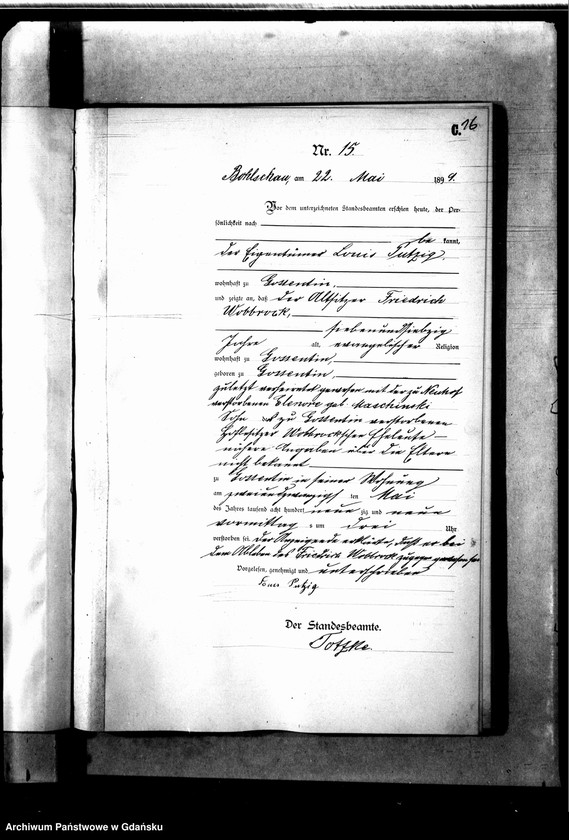 C. 16
Nr. 15.
Bohlschau, am 22. Mai 1899.
Vor dem unterzeichneten Standesbeamten erschien heute, der Per-
sönlichkeit nach
be kannt,
der Eigentümer Louis Putzig,
wohnhaft zu Gossentin,
und zeigte an, daß der Altsitzer Friedrich
Wobbrock,
siebenundsiebzig
Jahre alt, evangelischer Religion
wohnhaft zu Gossentin,
geboren zu Gossentin,
zuletzt verheiratet gewesen mit der zu Neuhof
verstorbenen Elenore geb. Maschinski
Sohn der zu Gossentin verstorbenen
Hofbesitzer Wobbrockschen Eheleute –
nähere Angaben über die Eltern
nicht bekannt
zu Gossentin in seiner Wohnung
am zweiundzwanzigsten Mai
des Jahres tausend acht hundert neunzig und neun
vormittags um drei Uhr
verstorben sei. Der Anzeigende erklärte, daß er bei
dem Ableben des Friedrich Wobbrock zugegen gewesen sei
Vorgelesen, genehmigt und unterschrieben
Louis Putzig
Der Standesbeamte.
Archiwum Państwowe w Gdańsku